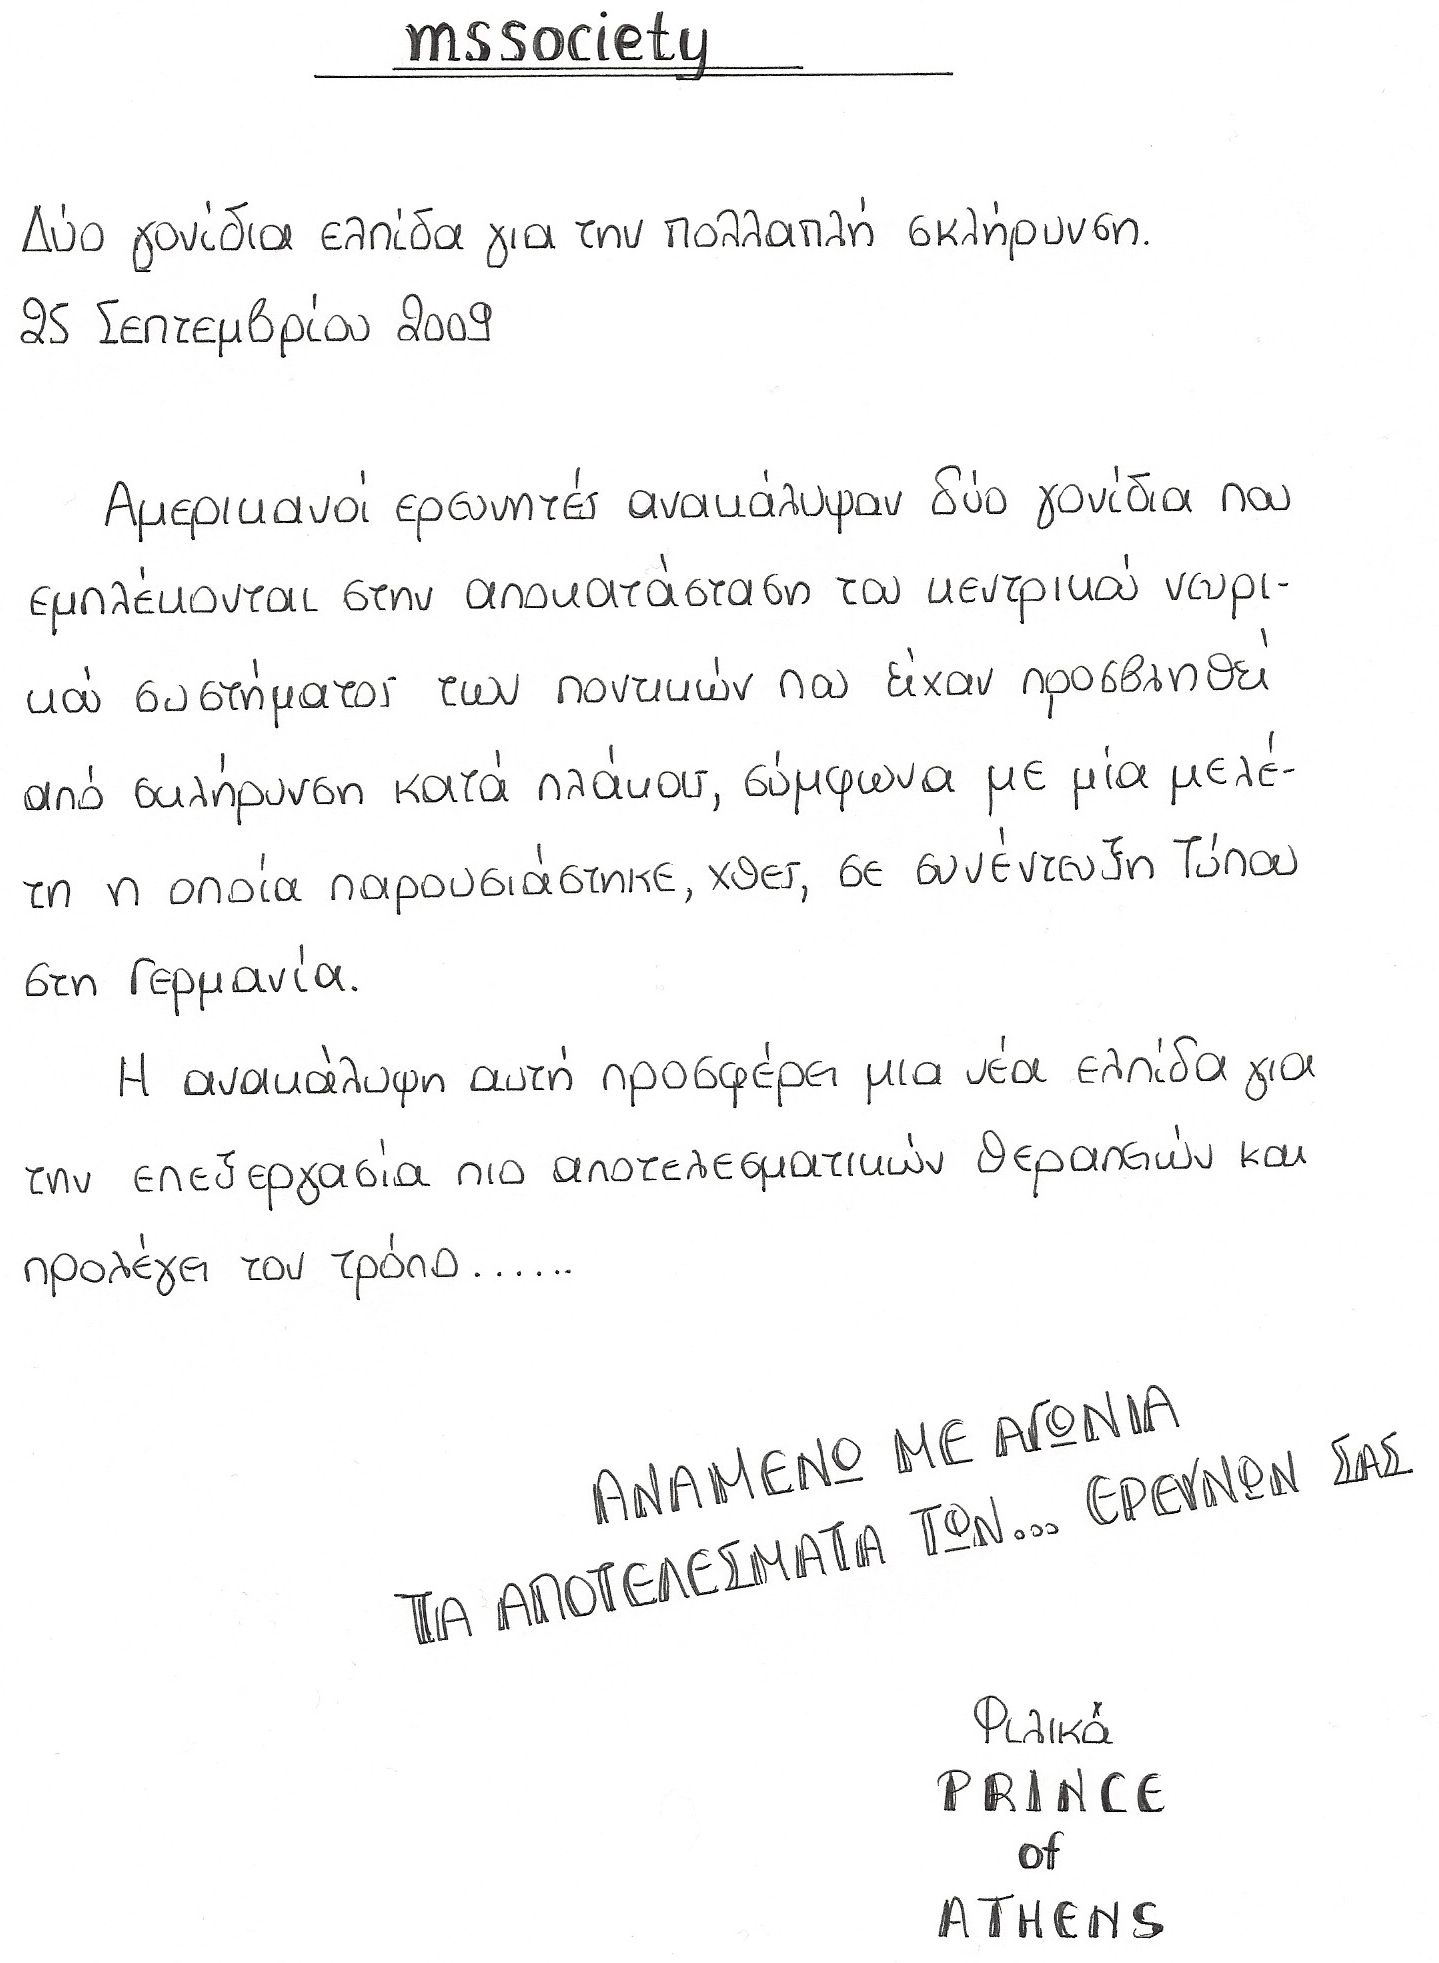 mssociety
Δύο γονίδια ελπίδα για την πολλαπλή σκλήρυνση.
25 Σεπτεμβρίου 2009
Αμερικανοί ερευνητές ανακάλυψαν δύο γονίδια που
εμπλέκονται στην αποκατάσταση του κεντρικού νευρι-
κού συστήματος των ποντικών που είχαν προσβληθεί
από σκλήρυνση κατά πλάκας, σύμφωνα με μία μελέ-
τη η οποία παρουσιάστηκε, χθες, σε συνέντευξη Τύπου
στη Γερμανία.
Η ανακάλυψη αυτή προσφέρει μια νέα ελπίδα για
την επεξεργασία πιο αποτελεσματικών θεραπειών και
προλέγει τον τρόπο......
ΑΝΑΜΕΝΩ ΜΕ ΑΓΩΝΙΑ
ΤΑ ΑΠΟΤΕΛΕΣΜΑΤΑ ΤΩΝ... ΕΡΕΥΝΩΝ ΣΑΣ
Φιλικά
PRINCE
of
ATHENS